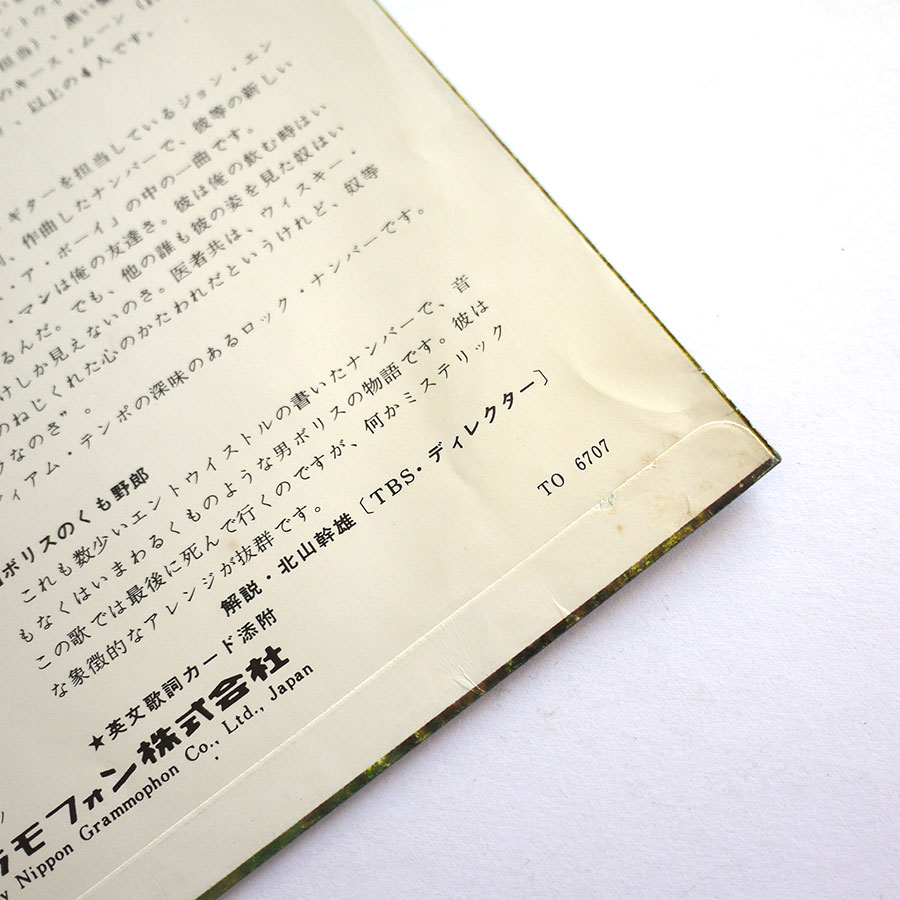 担当)、黒い
のキース・ムーン
、以上の4人です。
ギターを担当しているジョン・エン
、作曲したナンバーで、彼等の新しい
ス・ア・ボーイ」の中の一曲です。
・マンは俺の友達さ。彼は俺の飲む時はい
るんだ。でも、他の誰も彼の姿を見た奴はい
けしか見えないのさ。医者共は、ウィスキー・
のねじくれた心のかたわれだというけれど、奴等
なのさ”。
ディアム・テンポの深味のあるロック・ナンバーです。
ボリスのくも野郎
これも数少いエントウイストルの書いたナンバーで、音
もなくはいまわるくものような男ボリスの物語です。彼は
この歌では最後に死んで行くのですが、何かミステリック
な象徴的なアレンジが抜群です。
解説・北山幹雄〔TBS・ディレクター〕
TO 6707
★英文歌詞カード添附
ラモフォン株式会社
y Nippon Grammophon Co., Ltd., Japan